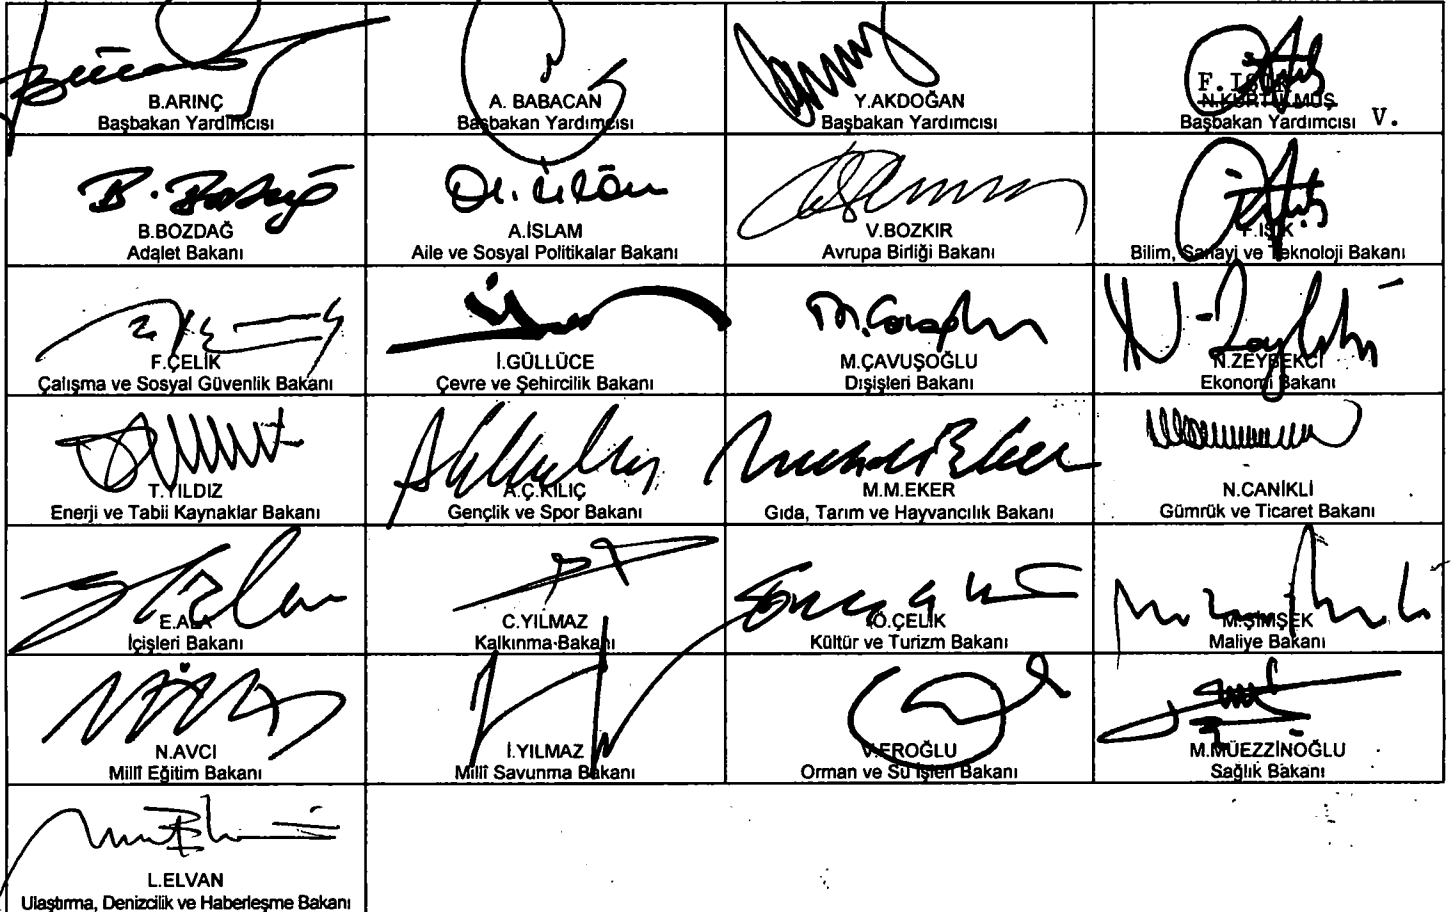 B.ARINÇ
Başbakan Yardımcısı
A. BABACAN
Başbakan Yardımcısı
Y.AKDOĞAN
Başbakan Yardımcısı
F.IŞIK
N.KURTULMUŞ
Başbakan Yardımcısı V.
B. Bozdağ
B.BOZDAĞ
Adalet Bakanı
A.İSLAM
Aile ve Sosyal Politikalar Bakanı
V.BOZKIR
Avrupa Birliği Bakanı
F.IŞIK
Bilim, Sanayi ve Teknoloji Bakanı
F.ÇELİK
Çalışma ve Sosyal Güvenlik Bakanı
İ.GÜLLÜCE
Çevre ve Şehircilik Bakanı
M.ÇAVUŞOĞLU
Dışişleri Bakanı
N.ZEYBEKCİ
Ekonomi Bakanı
T.YILDIZ
Enerji ve Tabii Kaynaklar Bakanı
A.Ç.KILIÇ
Gençlik ve Spor Bakanı
M.M.EKER
Gıda, Tarım ve Hayvancılık Bakanı
N.CANİKLİ
Gümrük ve Ticaret Bakanı
E.ALA
İçişleri Bakanı
C.YILMAZ
Kalkınma Bakanı
Ö.ÇELİK
Kültür ve Turizm Bakanı
M.ŞİMŞEK
Maliye Bakanı
N.AVCI
Millî Eğitim Bakanı
İ.YILMAZ
Millî Savunma Bakanı
V.EROĞLU
Orman ve Su İşleri Bakanı
M.MÜEZZİNOĞLU
Sağlık Bakanı
L.ELVAN
Ulaştırma, Denizcilik ve Haberleşme Bakanı